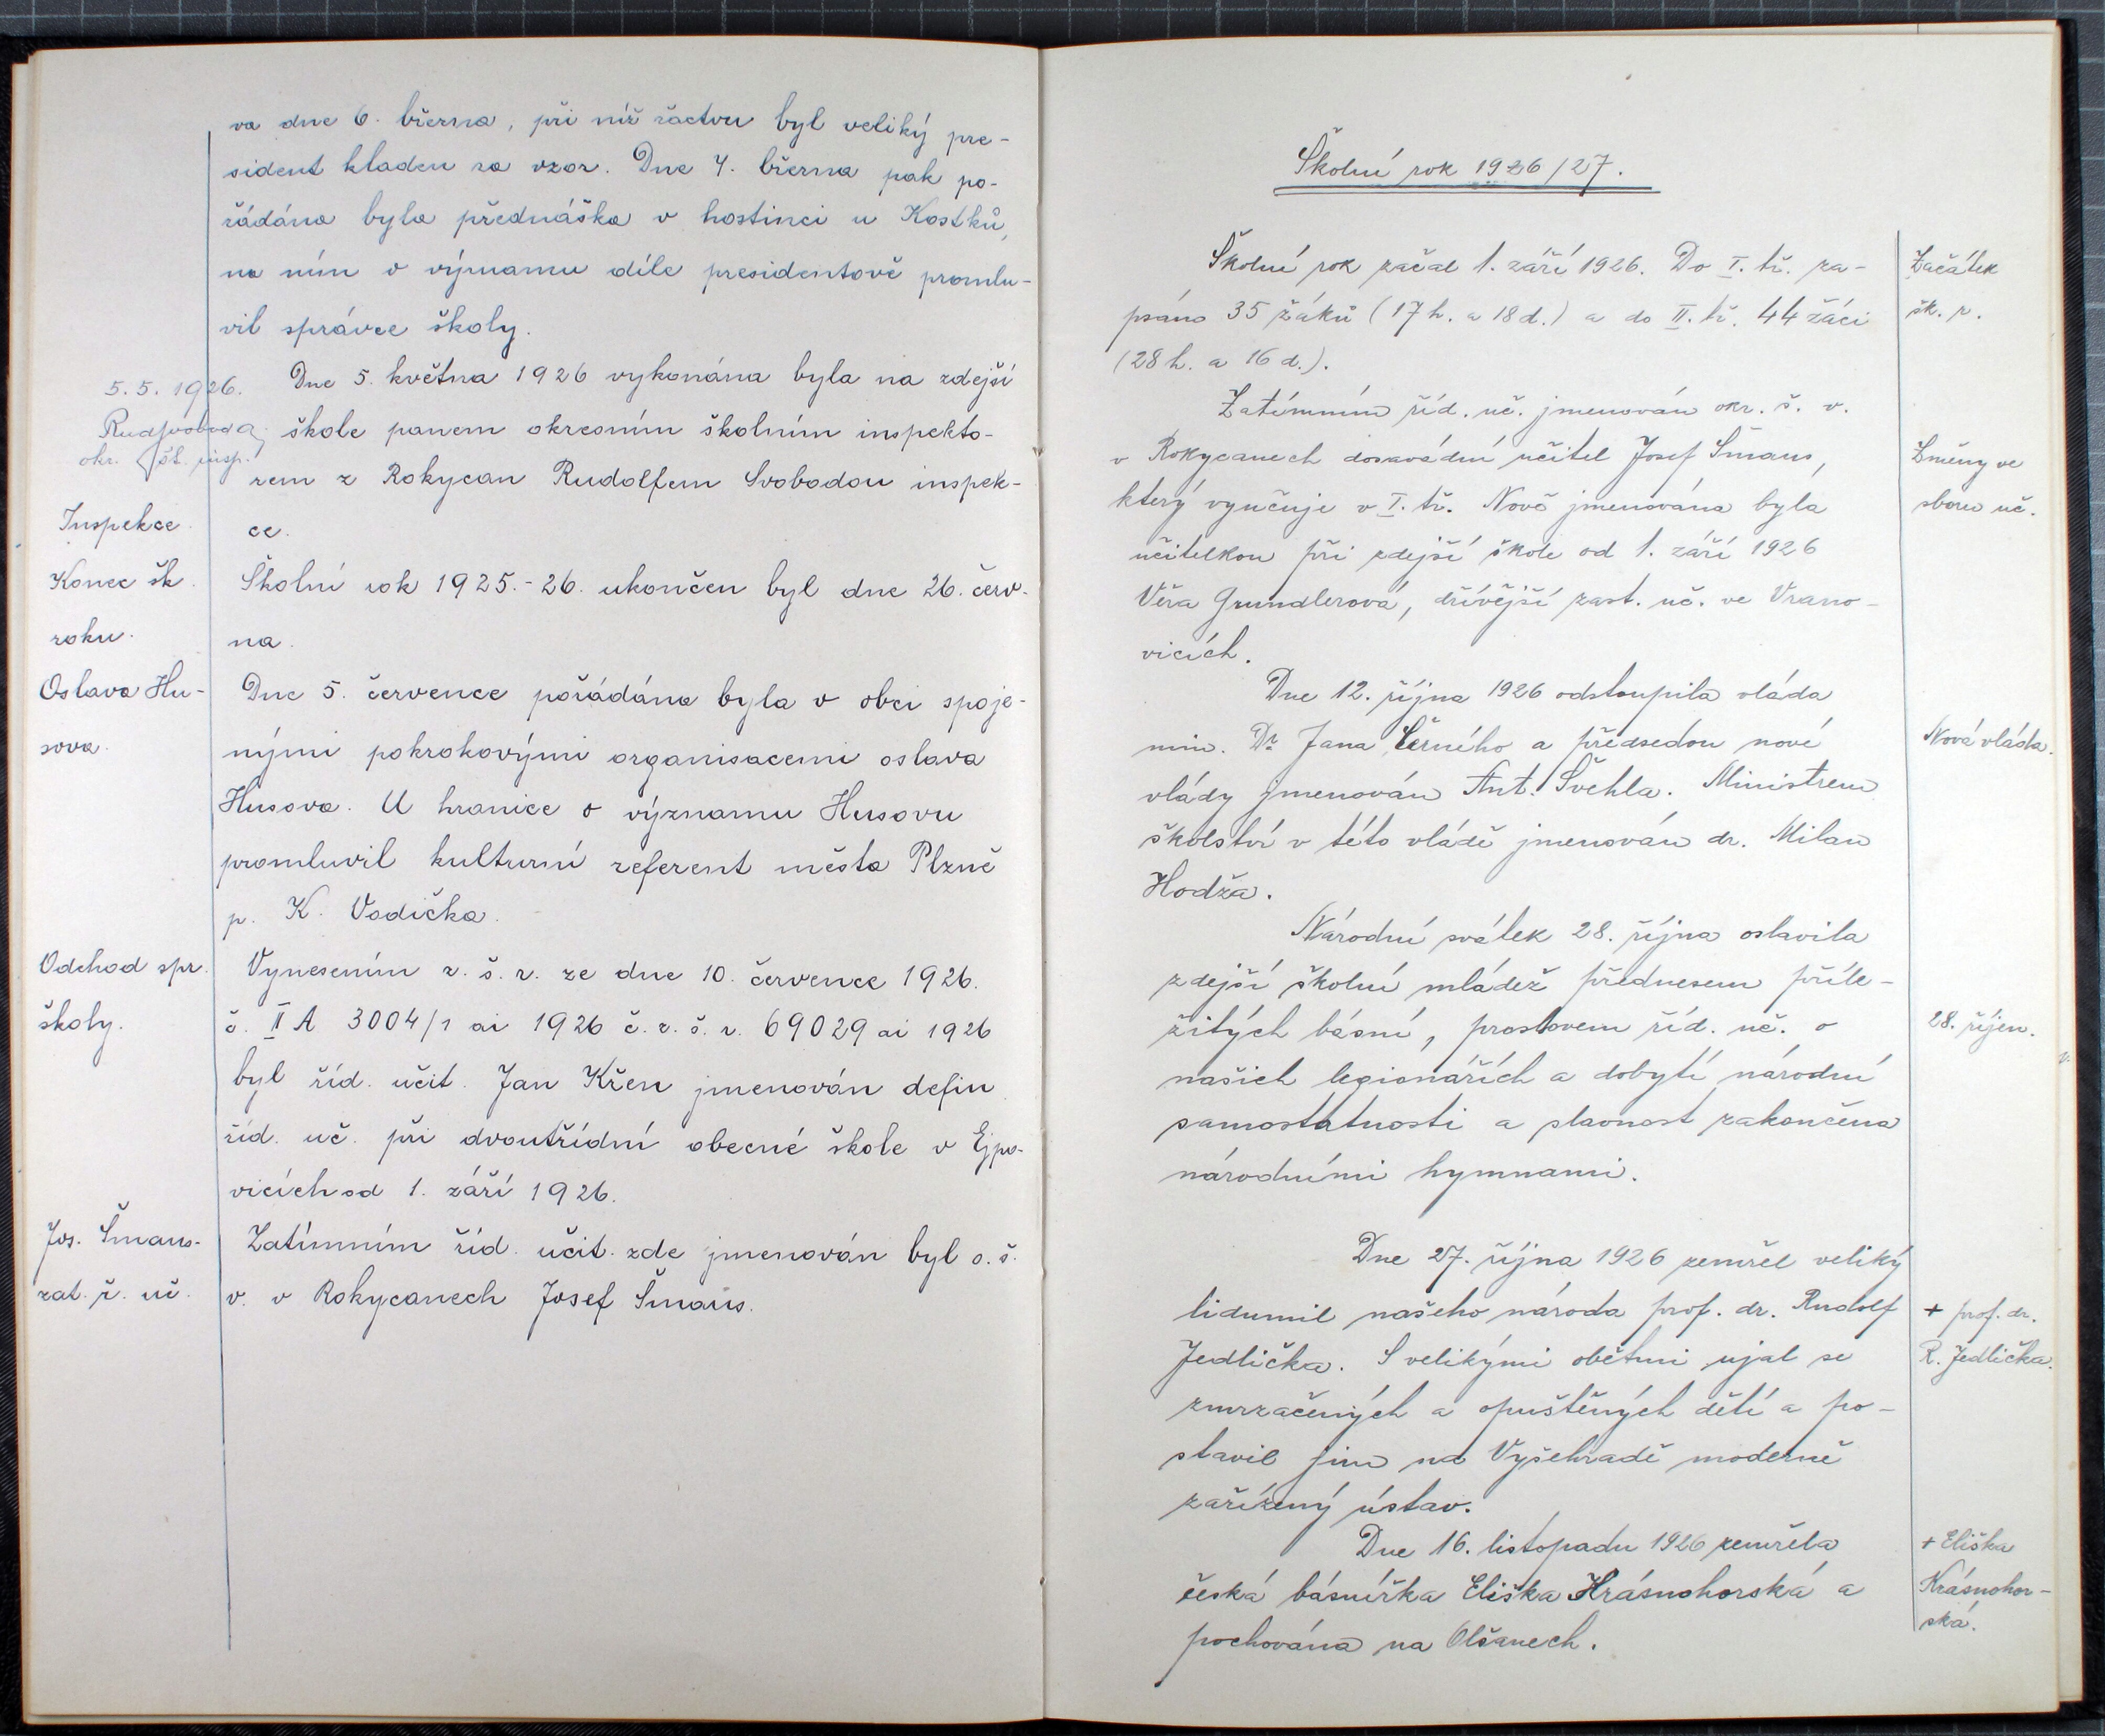 va dne 6. března, při níž žactvu byl veliký pre-
sident kladen za vzor. Dne 7. března pak po-
řádána byla přednáška v hostinci u Kostků,
na níž o významu díle presidentově promlu-
vil správce školy.
5. 5. 1926.
Dne 5. května 1926 vykonána byla na zdejší
RudSvoboda,
škole panem okresním školním inspekto-
okr. šk. insp.
rem z Rokycan Rudolfem Svobodou inspek-
Inspekce
ce.
Konec šk.
Školní rok 1925.-26. ukončen byl dne 26. červ-
roku.
na.
Oslava Hu-
Dne 5. července pořádána byla v obci spoje-
sova.
nými pokrokovými organisacemi oslava
Husova. U hranice o významu Husovu
promluvil kulturní referent města Plzně
p. K. Vodička.
Odchod spr.
Vynesením z. š. r. ze dne 10. července 1926.
školy.
č. II A 3004/1 ai 1926 č. z. š. r. 69029 ai 1926
byl říd. učit. Jan Křen jmenován defin.
říd. uč. při dvoutřídní obecné škole v Ejpo-
vicích od 1. září 1926.
Jos. Šmaus-
Zatímním říd. učit. zde jmenován byl o. š.
zat. ř. uč.
v. v Rokycanech Josef Šmaus.
Školní rok 1926/27.
Školní rok začal 1. září 1926. Do I. tř. za-
Začátek
psáno 35 žáků (17 h. a 18 d.) a do II. tř. 44 žáci
šk. r.
(28 h. a 16 d.).
Zatímním říd. uč. jmenován okr. š. v.
v Rokycanech dosavádní učitel Josef Šmaus,
Změny ve
který vyučuje v I. tř. Nově jmenována byla
sboru uč.
učitelkou při zdejší škole od 1. září 1926
Věra Grundlerová, dřívější zast. uč. ve Vrano-
vicích.
Dne 12. října 1926 odstoupila vláda
min. Dr. Jana Černého a předsedou nové
Nová vláda.
vlády jmenován Ant. Švehla. Ministrem
školství v této vládě jmenován dr. Milan
Hodža.
Národní svátek 28. října oslavila
zdejší školní mládež přednesem příle-
žitých básní, proslovem říd. uč. o
28. říjen.
našich legionářích a dobytí národní
samostatnosti a slavnost zakončena
národními hymnami.
Dne 27. října 1926 zemřel veliký
lidumil našeho národa prof. dr. Rudolf
+ prof. dr.
Jedlička. S velikými obětmi ujal se
R. Jedlička.
zmrzačených a opuštěných dětí a po-
stavil jim na Vyšehradě moderně
zařízený ústav.
Dne 16. listopadu 1926 zemřela
+ Eliška
česká básnířka Eliška Krásnohorská a
Krásnohor-
ská.
pochována na Olšanech.